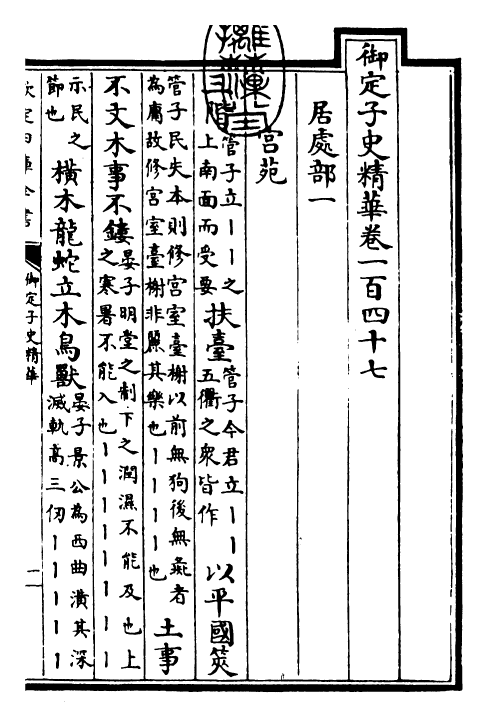 御定子史精華卷一百四十七
居處部一
宮苑
三階管子立丨丨之上南面而受要
扶臺管子今君立丨丨五衢之衆皆作
以平國筴管子民失本則修宮室臺榭以前無狗後無彘者為庸故修宮室臺榭非麗其樂也丨丨丨丨也
土事不文木事不鏤晏子明堂之制下之潤濕不能及也上之寒暑不能入也丨丨丨丨丨丨丨丨示民之節也
橫木龍蛇立木鳥獸晏子景公為西曲潢其深滅軌高三仞丨丨丨丨丨丨
欽定四庫全書
御定子史精華